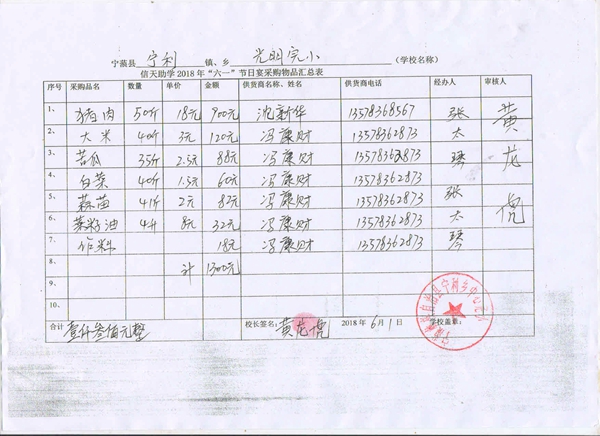 宁蒗县 宁利 镇、乡 光明完小 (学校名称)
信天助学 2018 年“六一”节日宴采购物品汇总表
序号 采购品名 数量 单价 金额 供货商名称、姓名 供货商电话 经办人 审核人
1、 猪肉 50斤 18元 900元 沈新华 13578368567 张 黄
2、 大米 40斤 3元 120元 冯康财 13578362873 太
3、 苦瓜 35斤 2.5元 88元 冯康财 13578362873 琴 龙
4、 白菜 40斤 1.5元 60元 冯康财 13578362873
5、 蒜苗 41斤 2元 82元 冯康财 13578362873 张
6、 菜籽油 4斤 8元 32元 冯康财 13578362873 太 虎
7、 作料 18元 冯康财 13578362873 琴
8、 计 1300元
9、
10、
合计 壹仟叁佰元整 校长签名: 黄龙虎 2018 年 6月1日 学校盖章:
自治县宁利乡中心完小